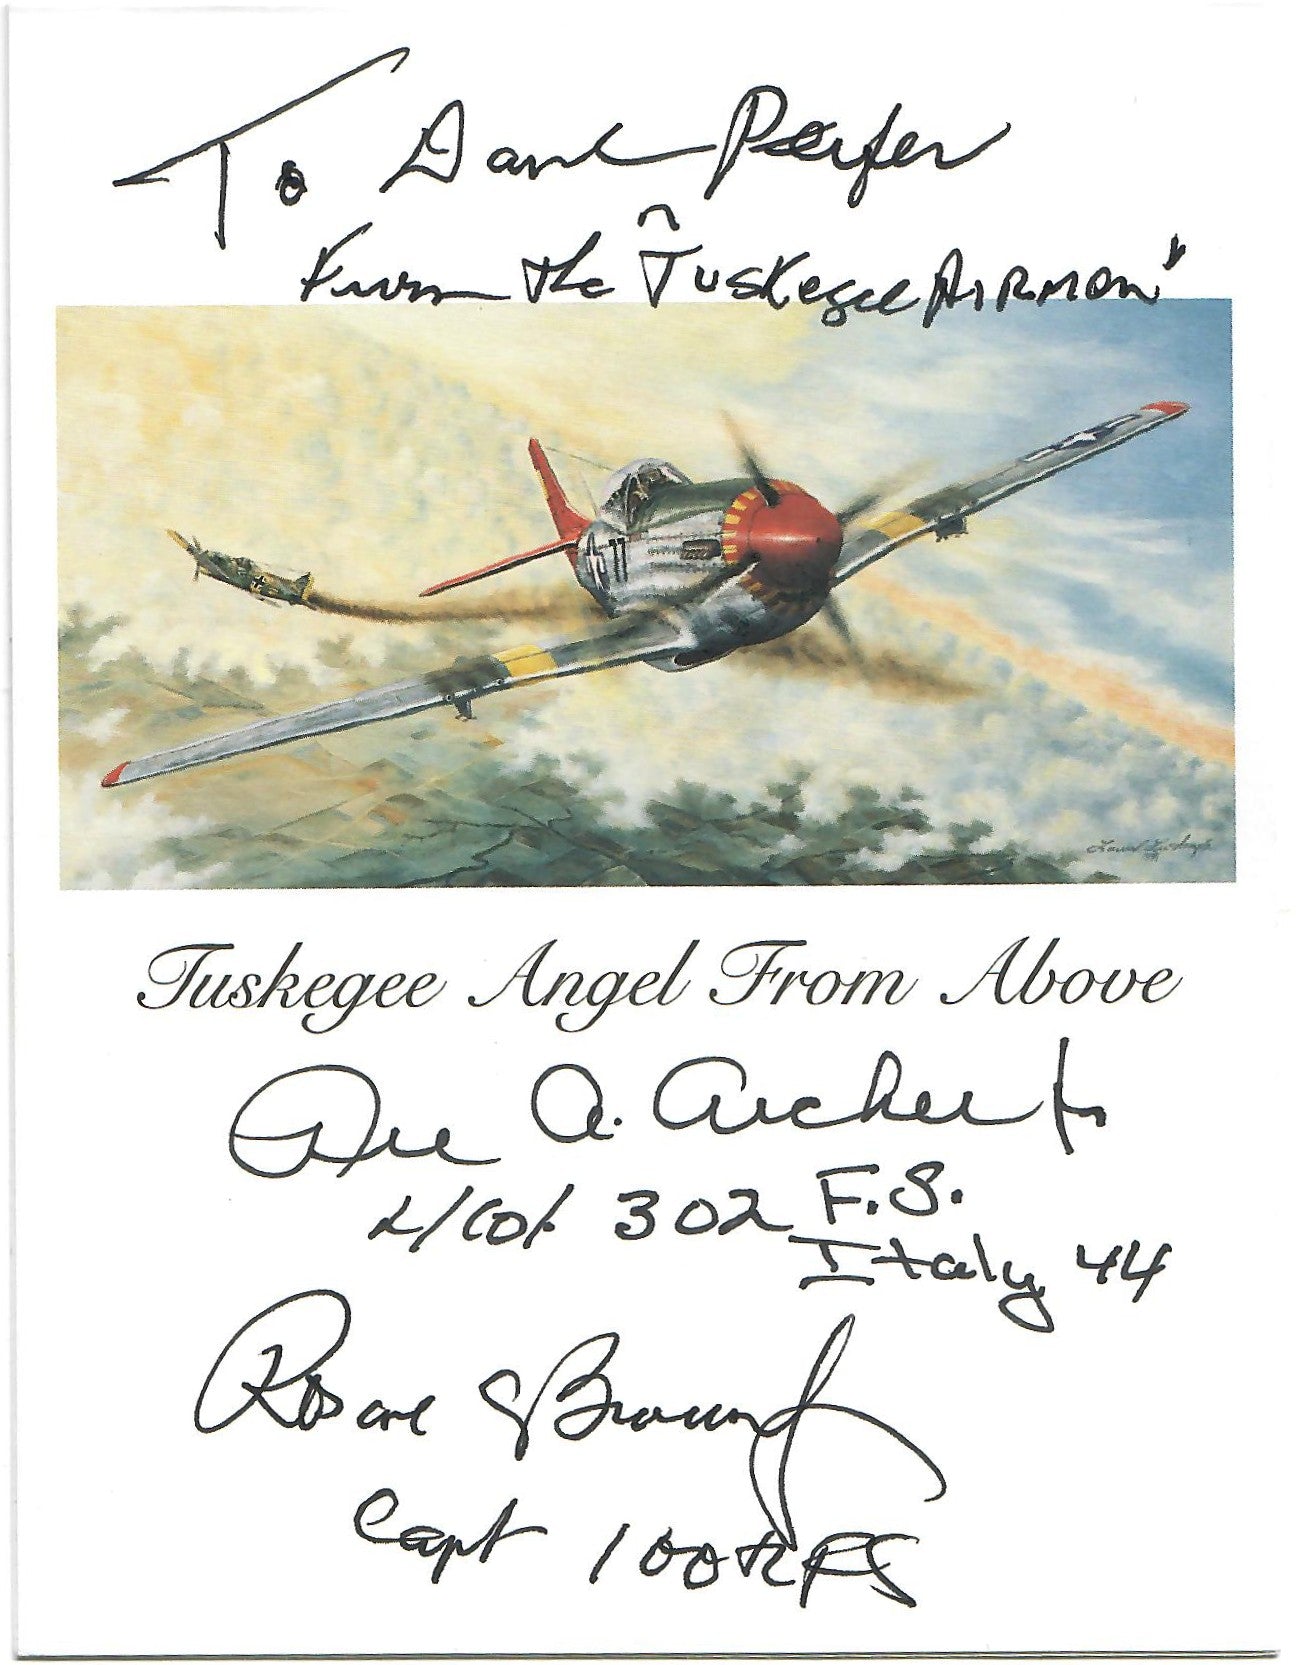 To Dave
From the "Tuskegee AIRMEN"
77
Tuskegee Angel From Above
Lee A. Archer Jr
L/Col 302 F.S.
Italy 44
Roscoe C Brown Jr
Capt 100th FS